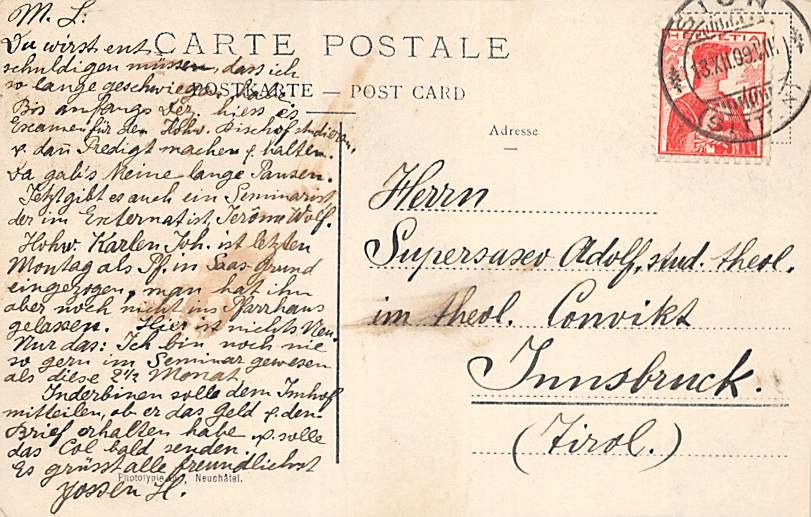 M. L:
Du wirst ent
schuldigen müssen, dass ich
so lange geschwiegen habe.
Bis anfangs Dez. hiess es
Examen für den Hohw. Bischof studieren
& dan̄ Predigt machen & halten.
Da gab's keine lange Pausen.
Jetzt gibt es auch ein Seminarist
der im Externat ist, Jerôme Wolf.
Hohw. Karlen Joh. ist letzten
Montag als Pf. in Saas-Grund
eingezogen, man hat ihn
aber noch nicht ins Pfarrhaus
gelassen. Hier ist nichts Neu.
Nur das: Ich bin noch nie
so gern im Seminar gewesen
als diese 2½ Monat
Inderbinen solle dem Imhof
mitteilen, ob er das Geld & den
Brief erhalten habe & solle
das Col bald senden.
Es grüsst alle freundlichst
Jossen H.
Phototypie Neuchâtel.
CARTE POSTALE
POSTKARTE — POST CARD
Adresse
HELVETIA
SION
13.XII.09
(SITTEN)
Herrn
Supersaxo Adolf, stud. theol.
im theol. Convikt
Innsbruck.
(Tirol.)